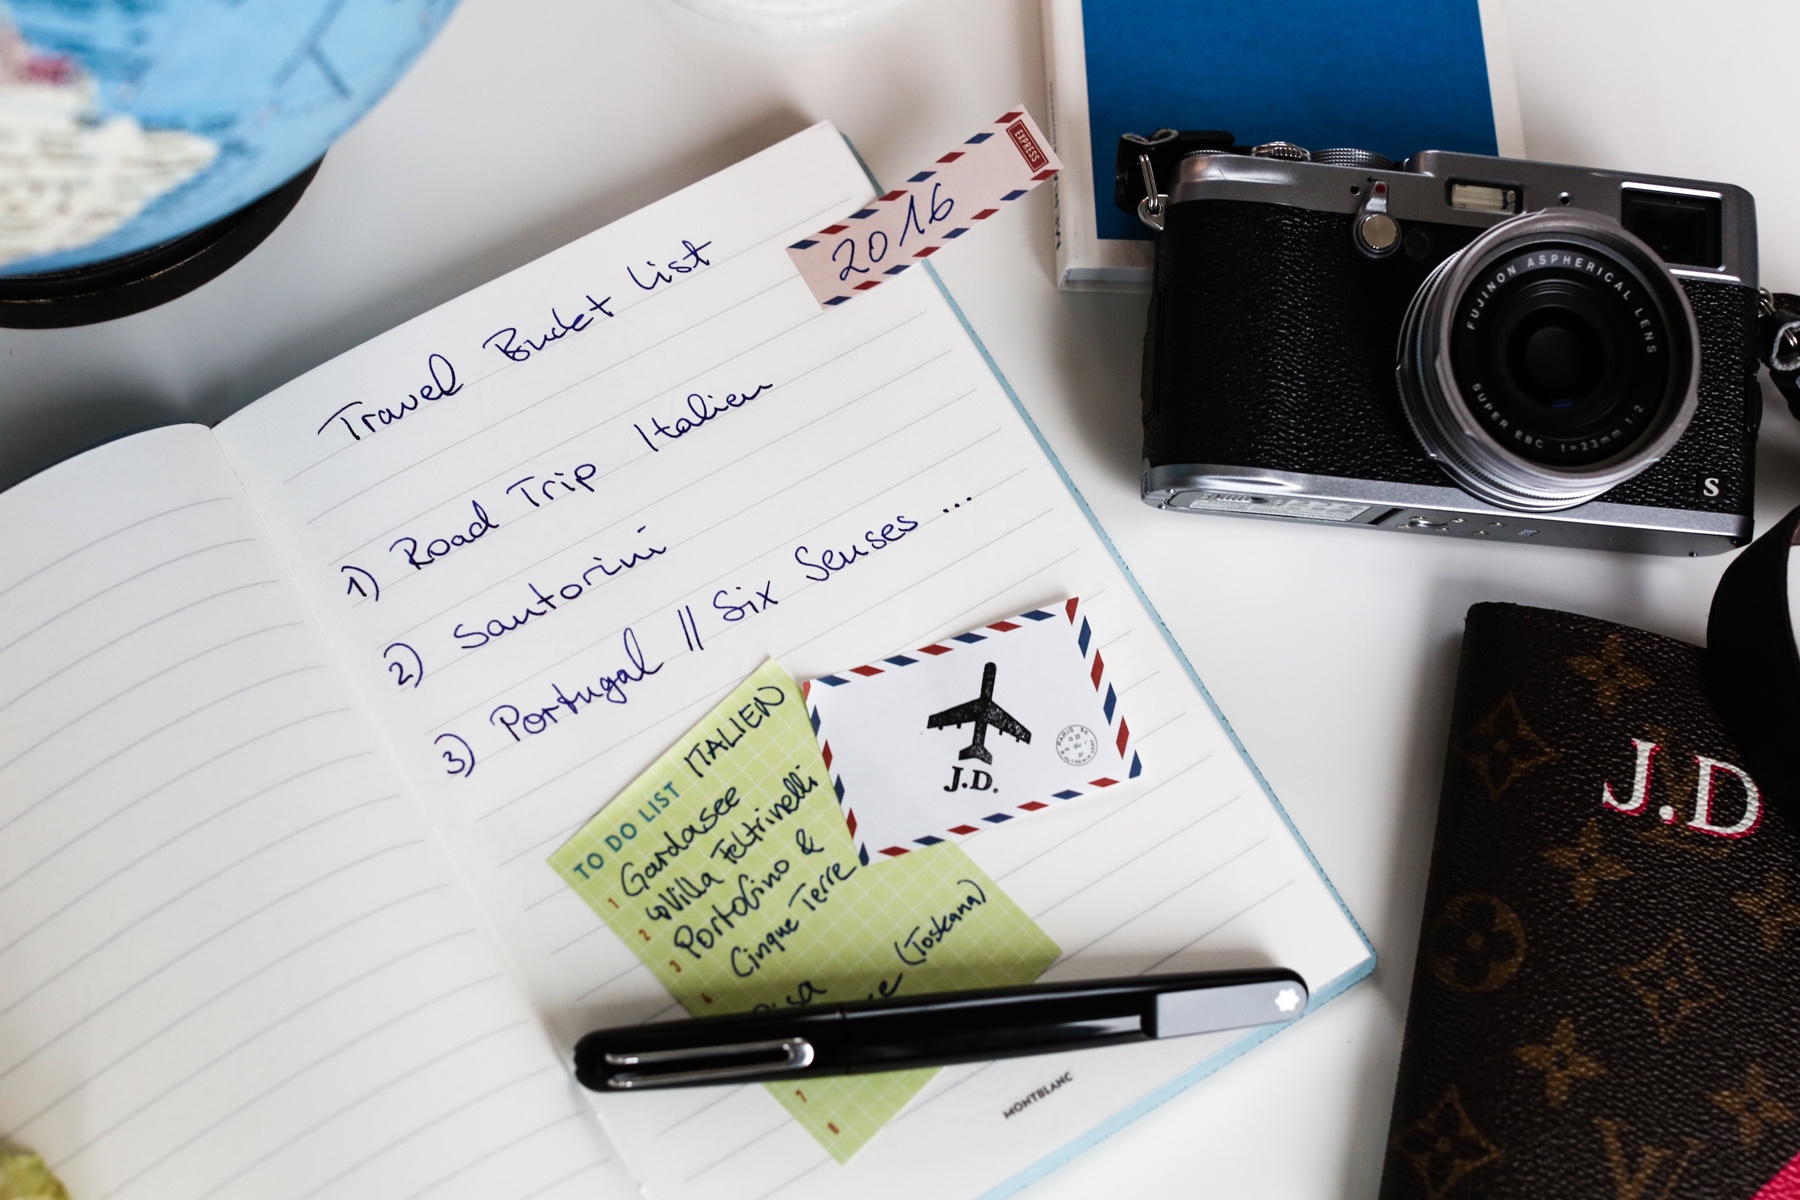 EXPRESS
2016
Travel Bucket List
1) Road Trip Italien
2) Santorini
3) Portugal // Six Senses ...
TO DO LIST ITALIEN
1 Gardasee
2 ↳ Villa Feltrinelli
3 Portofino &
Cinque Terre
(Toskana)
7
8
J.D.
PARIS
MONTBLANC
FUJINON ASPHERICAL LENS
SUPER EBC f=23mm 1:2
S
J.D